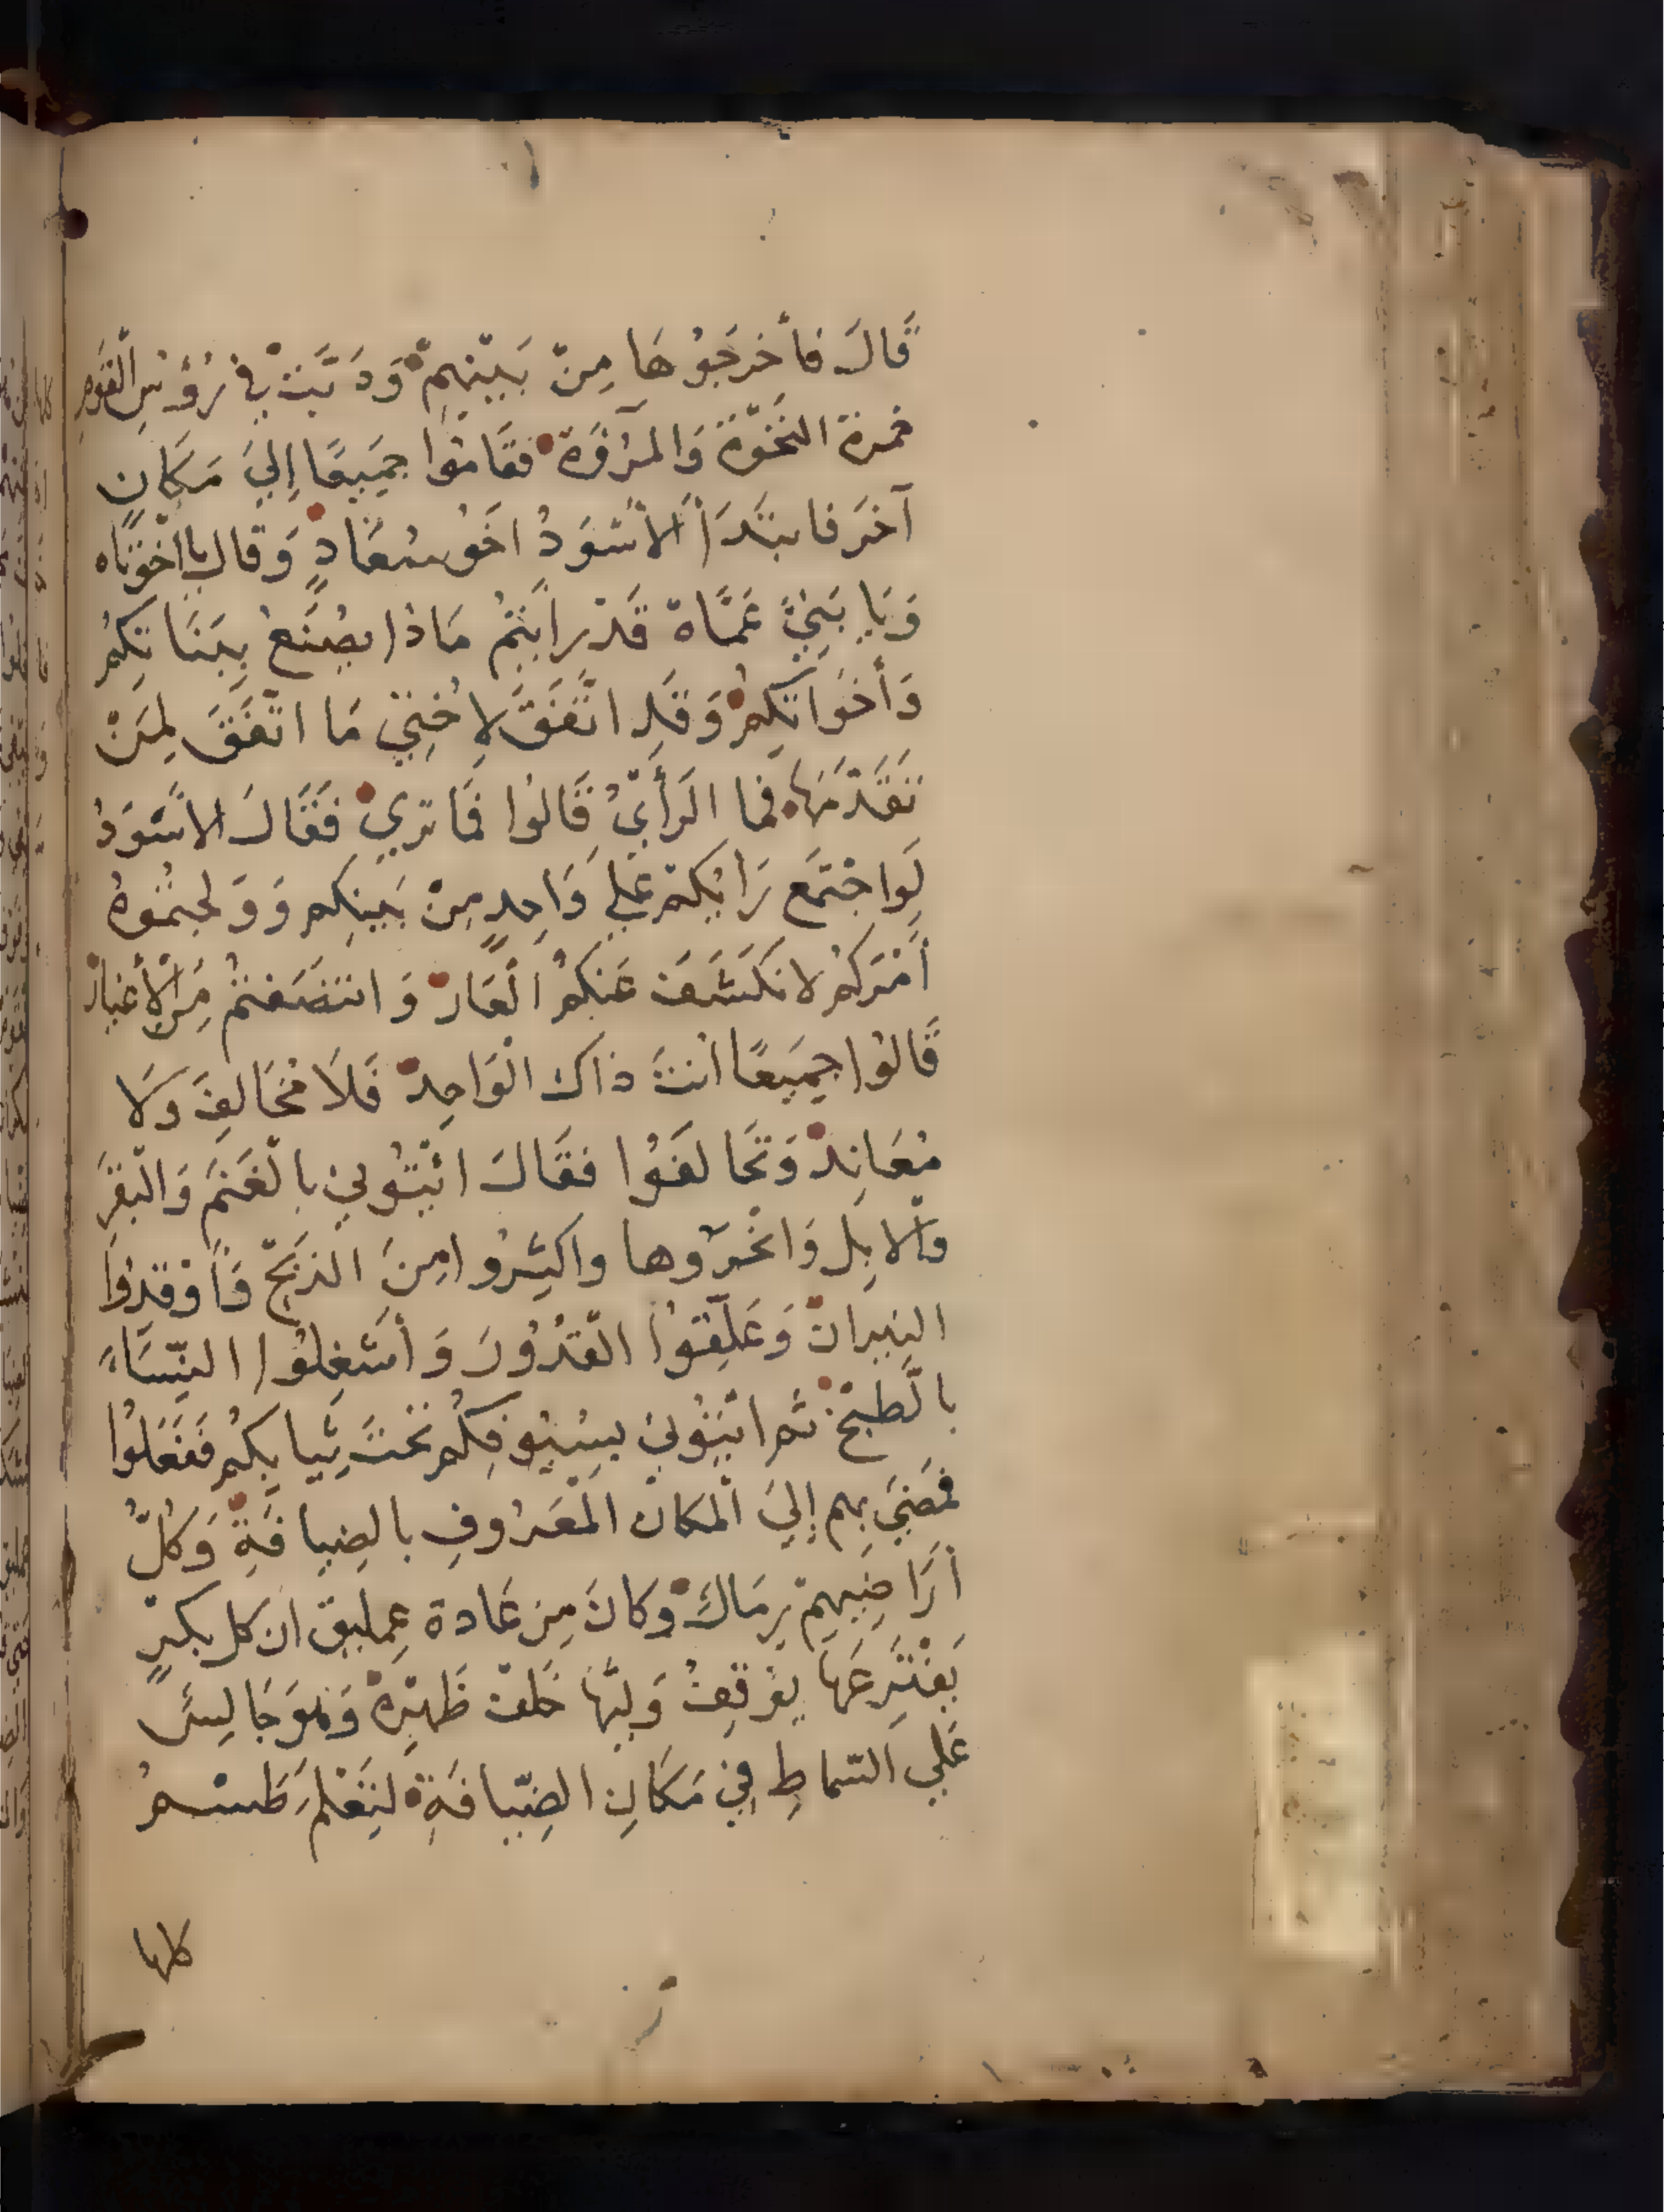 قَالَ فأخرَجُوهَا مِنْ بَيْنِهِمْ وَدَبَّتْ فِي رُؤُسِ الْقَومِ
خمرة النَّخْوَّة وَالمُرُوَّة فقَامُوا جَمِيعًا إلي مَكَانٍ
آخَر فابتَدَأ الأسْوَدُ اخَو سُعَادٍ وَقال يا اخْوَتَاه
وَيَا بَنِيْ عَمَّاهْ قَدْ رايتمْ مَاذا يصْنَعُ بِبَنَاتكُم
وَأخوَاتكِمْ وَقَدِ اتَّفَقَ لاخْتِيْ مَا اتَّفَقَ لِمَنْ
تَقَدَّمَهَا فما الرَأيْ قَالوُا فَمَا ترَي فَقَالَ الاسْوَدُ
لَوِ اجْتَمَع رَايكمْ عَلي وَاحِدٍ مِنْ بَينِكم وَوَلجتُموُهُ
أمْرَكُم لانكَشَفَ عَنكُم الْعَارْ وَانتصَفتُمْ مِنَ الأغيارْ
قَالوُا جَمِيعًا انتَ ذاكَ الْوَاحِدْ فَلَا مُخَالِفَ وَلَا
مُعَانِدْ وَتحَالَفوُا فقَالَ ائتوُنِي بالْغَنَمِ وَالْبَقَرِ
وَالابِل وَانحَروُها واكثِروُا مِنَ الذبْحْ وَأوْقدوُا
النِيرانْ وَعَلِّقوُا الْقُدُوُرَ وَأشْغِلوُا النِّسَاءَ
بالطبْخْ ثم ائتوُنِي بسِيُوفِكُم تَحْتَ ثِيابِكُم فَفَعَلوُا
فمَضيَ بهم إليَ الْمَكان الْمعَروُفِ بالضِيافَةِ وَكُلُّ
أرَاضِيهِمْ رِمَالْ وَكَانَ مِن عَادة عِمليق ان كل بكرٍ
يَفْتَرِعَهَا يوَقِفُ وَليَّهَا خَلفَ ظَهْرِهْ وَهُوَ جَالِسٌ
عَلي السّماطِ فِي مَكَانِ الضِّيافَةِ لتَعْلَمَ طَسْمُ
كلها